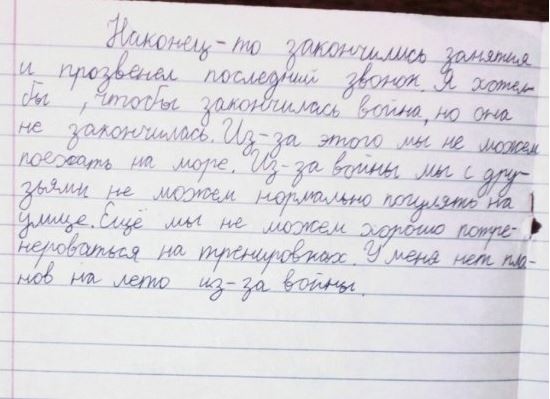 Наконец-то закончились занятия
и прозвенел последний звонок. Я хотел
бы, чтобы закончилась война, но она
не закончилась. Из-за этого мы не можем
поехать на море. Из-за войны мы с дру-
зьями не можем нормально погулять на
улице. Ещё мы не можем хорошо потре-
нероваться на тренировках. У меня нет пла-
нов на лето из-за войны.